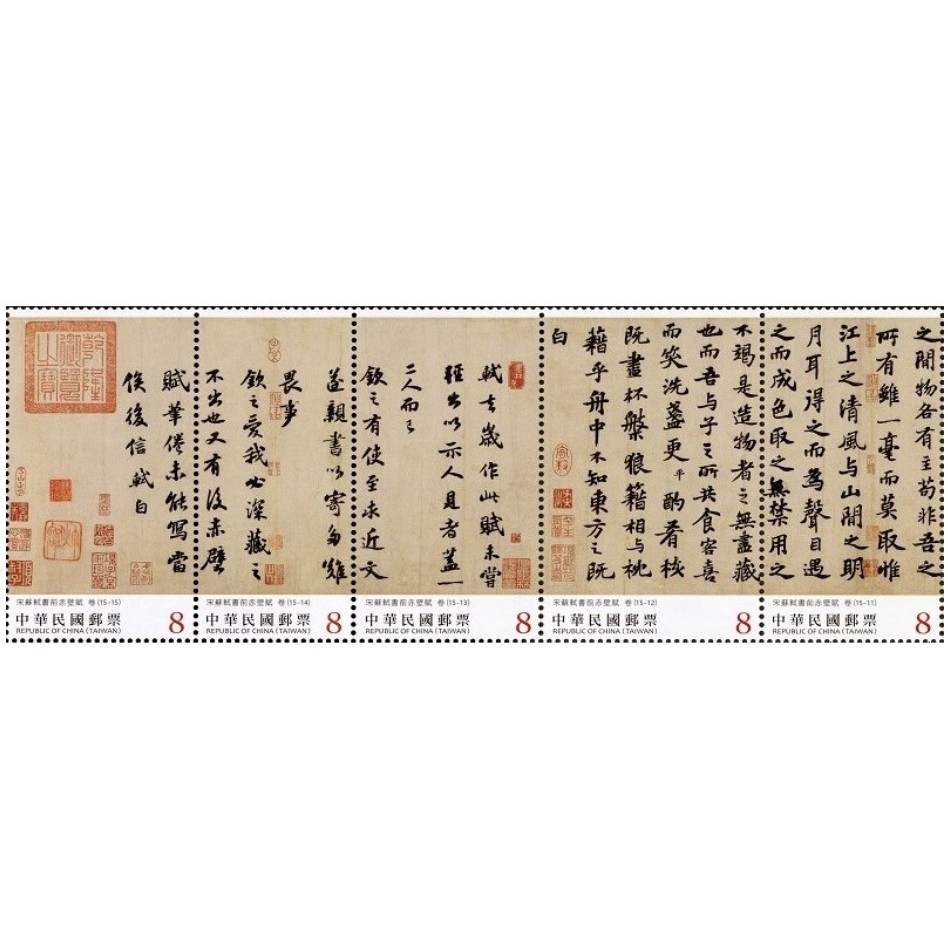 之間物各有主苟非吾之
所有雖一毫而莫取惟
江上之清風与山間之明
月耳得之而為聲目遇
之而成色取之無禁用之
宋蘇軾書前赤壁賦 卷(15-11)
中華民國郵票 8
REPUBLIC OF CHINA (TAIWAN)
不竭是造物者之無盡藏
也而吾与子之所共食客喜
而笑洗盞更平酌肴核
既盡杯槃狼籍相与枕
藉乎舟中不知東方之既
白
宋蘇軾書前赤壁賦 卷(15-12)
中華民國郵票 8
REPUBLIC OF CHINA (TAIWAN)
軾去歲作此賦未嘗
輕出以示人見者蓋一
二人而已
欽之有使至求近文
宋蘇軾書前赤壁賦 卷(15-13)
中華民國郵票 8
REPUBLIC OF CHINA (TAIWAN)
遂親書以寄多難
畏事
欽之愛我必深藏之
不出也又有後赤壁
宋蘇軾書前赤壁賦 卷(15-14)
中華民國郵票 8
REPUBLIC OF CHINA (TAIWAN)
賦筆倦未能寫當
俟後信軾白
乾隆御覽之寶
宋蘇軾書前赤壁賦 卷(15-15)
中華民國郵票 8
REPUBLIC OF CHINA (TAIWAN)